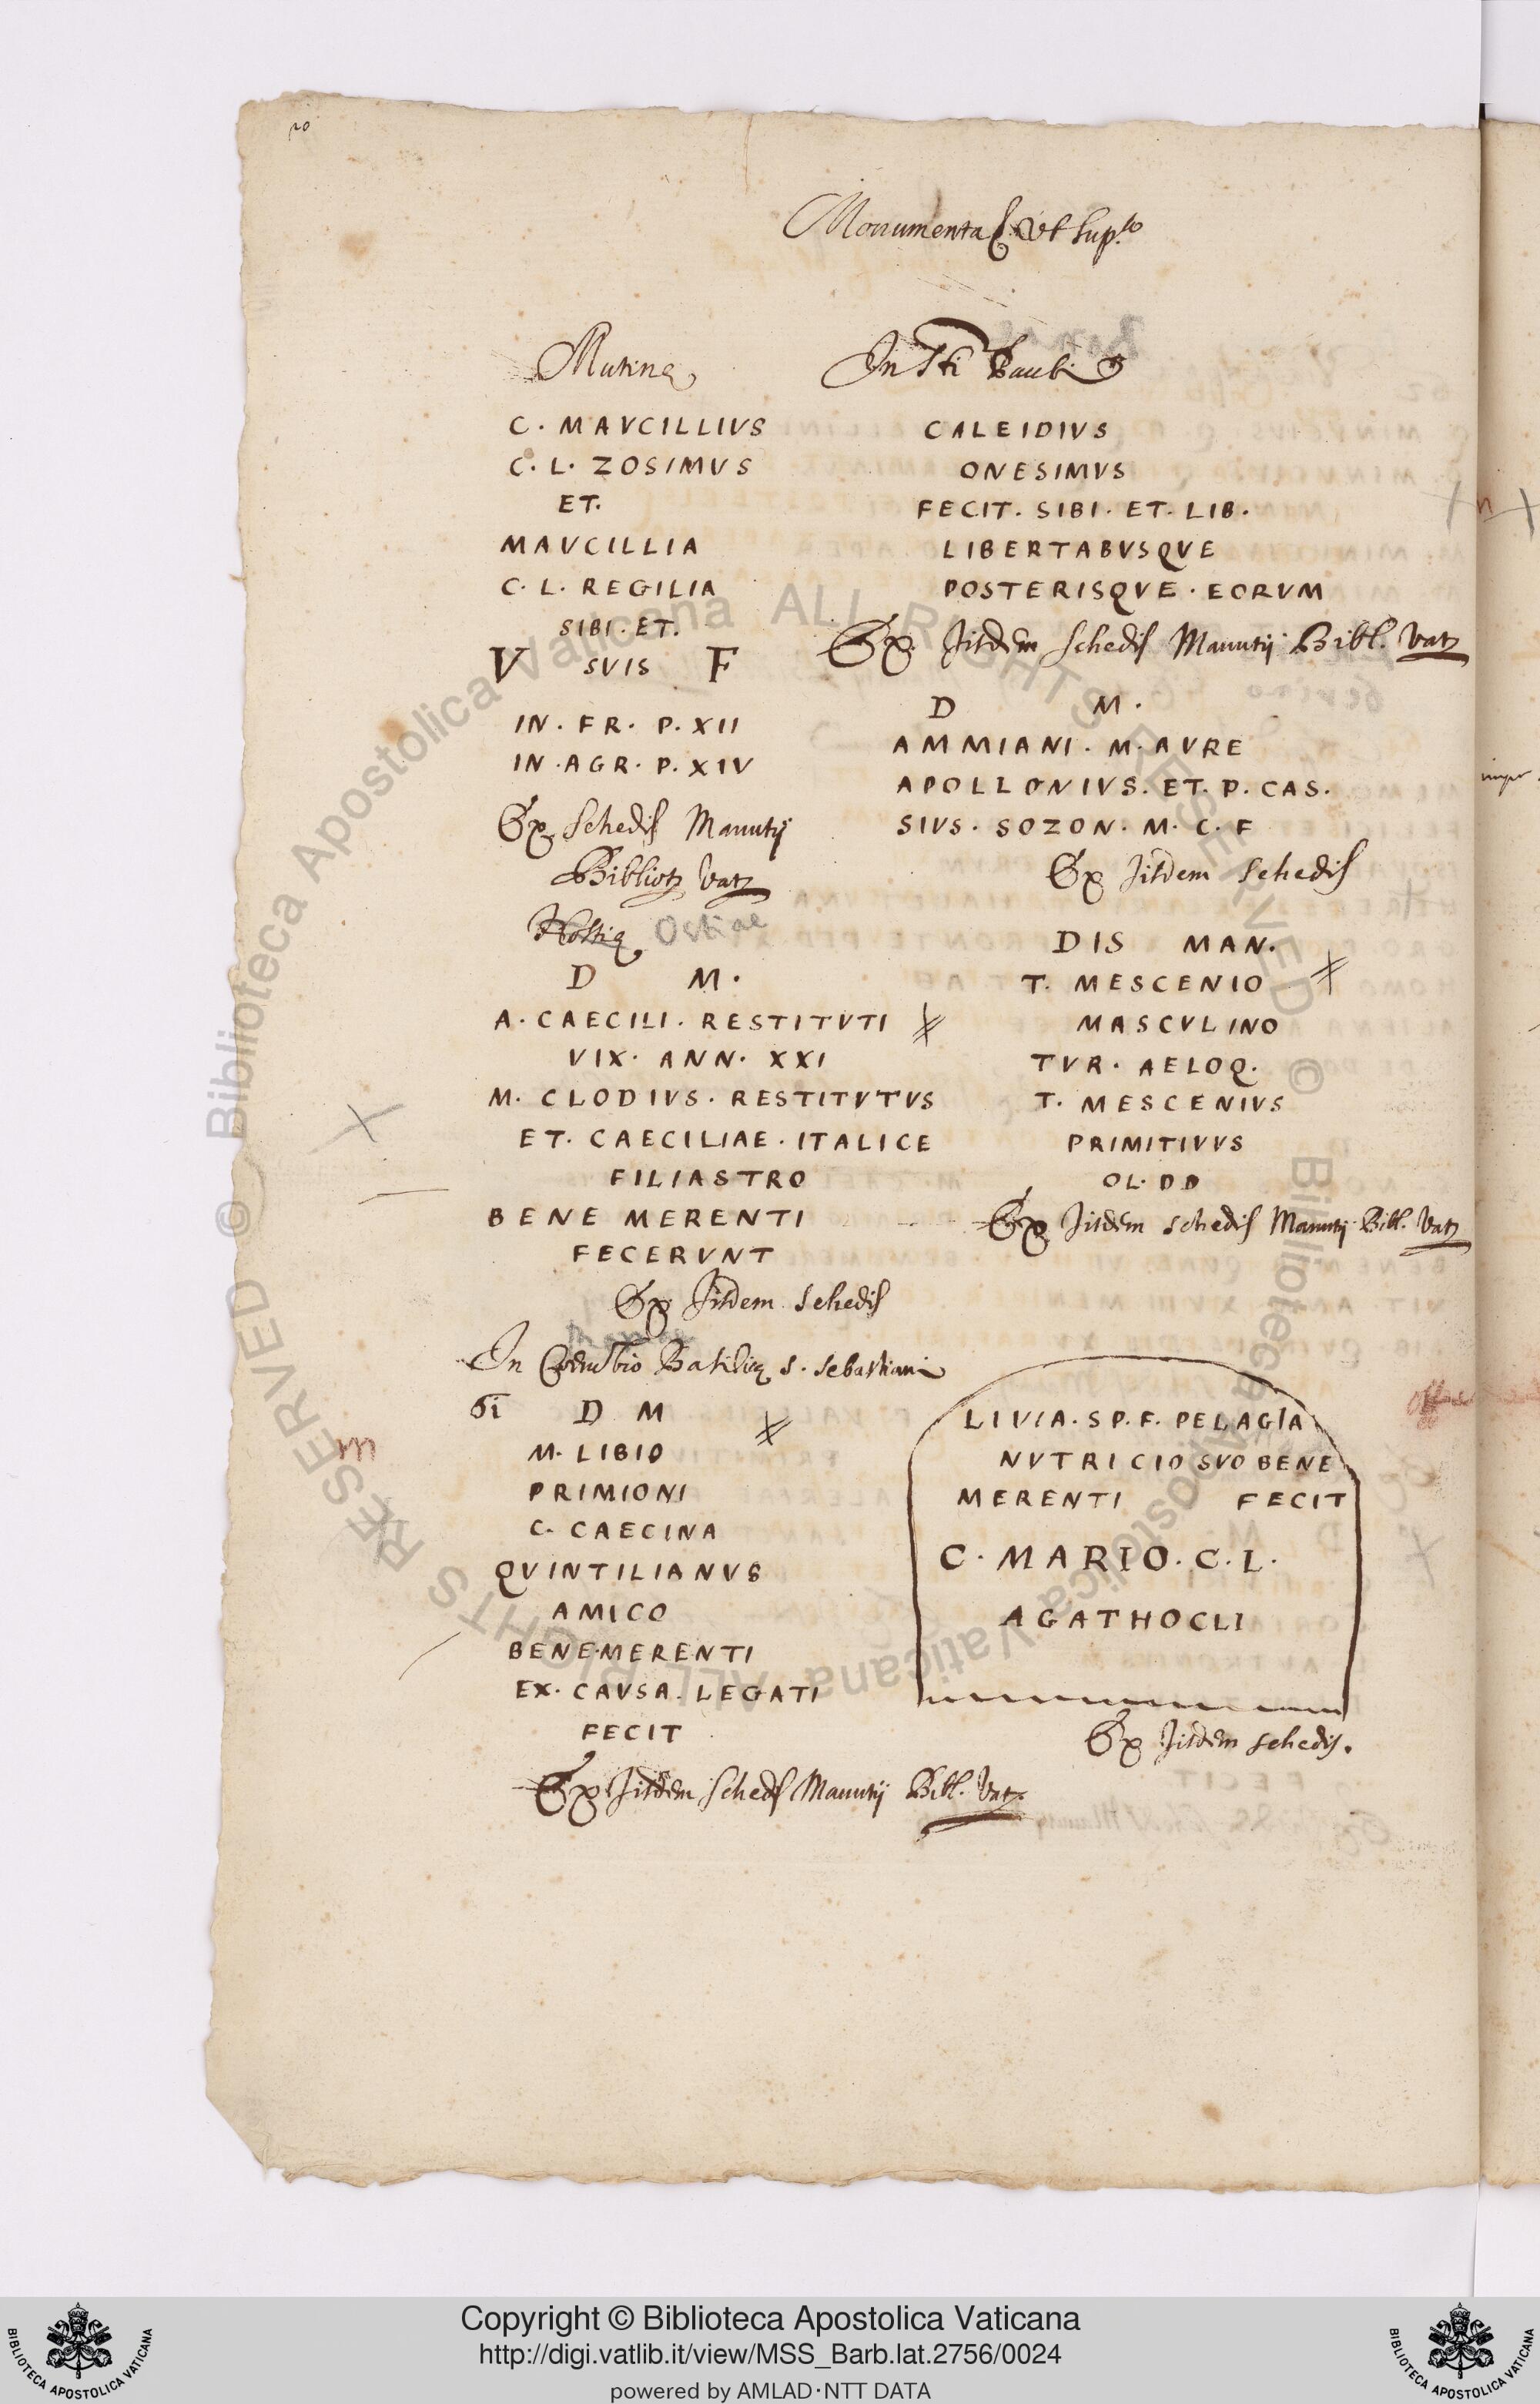 20
Monumenta
Mutinę
C. MAVCILLIVS
C. L. ZOSIMVS
ET.
MAVCILLIA
C. L. REGILIA
SIBI. ET.
V SVIS F
IN. FR. P. XII
IN. AGR. P. XIV
Ex Schedis Manutij
Biblioth Vat
Hostię Ostiae
D M.
A. CAECILI. RESTITVTI
VIX. ANN. XXI
M. CLODIVS. RESTITVTVS
ET. CAECILIAE. ITALICE
FILIASTRO
BENE MERENTI
FECERVNT
Ex Jisdem Schedis
Romae
In Basilicę S. Sebastiani
D M
M. LIBIO
PRIMIONI
C. CAECINA
QVINTILIANVS
AMICO
BENE.MERENTI
EX. CAVSA. LEGATI
FECIT
Ex Jisdem Sched Manutij Bibl. Vat.
m
Romae
In Sti Pauli
CALEIDIVS
ONESIMVS
FECIT. SIBI. ET. LIB.
LIBERTABVSQVE
POSTERISQVE. EORVM
Ex Jisdem Schedis Manutij Bibl. Vat
D M.
AMMIANI. M. AVRE
APOLLONIVS. ET. P. CAS.
SIVS. SOZON. M. C. F
Ex Jisdem Schedis
DIS MAN.
T. MESCENIO
MASCVLINO
TVR. AELOQ.
T. MESCENIVS
PRIMITIVVS
OL. DD
Ex Jisdem Schedis Manutij Bibl. Vat
LIVIA. SP. F. PELAGIA
NVTRICIO SVO BENE
MERENTI FECIT
C. MARIO. C. L.
AGATHOCLI
Ex Jisdem Schedis.
© Biblioteca Apostolica Vaticana ALL RIGHTS RESERVED © Biblioteca Apostolica Vaticana ALL RIGHTS RESERVED
Copyright © Biblioteca Apostolica Vaticana
http://digi.vatlib.it/view/MSS_Barb.lat.2756/0024
powered by AMLAD·NTT DATA
BIBLIOTECA APOSTOLICA VATICANA
BIBLIOTECA APOSTOLICA VATICANA